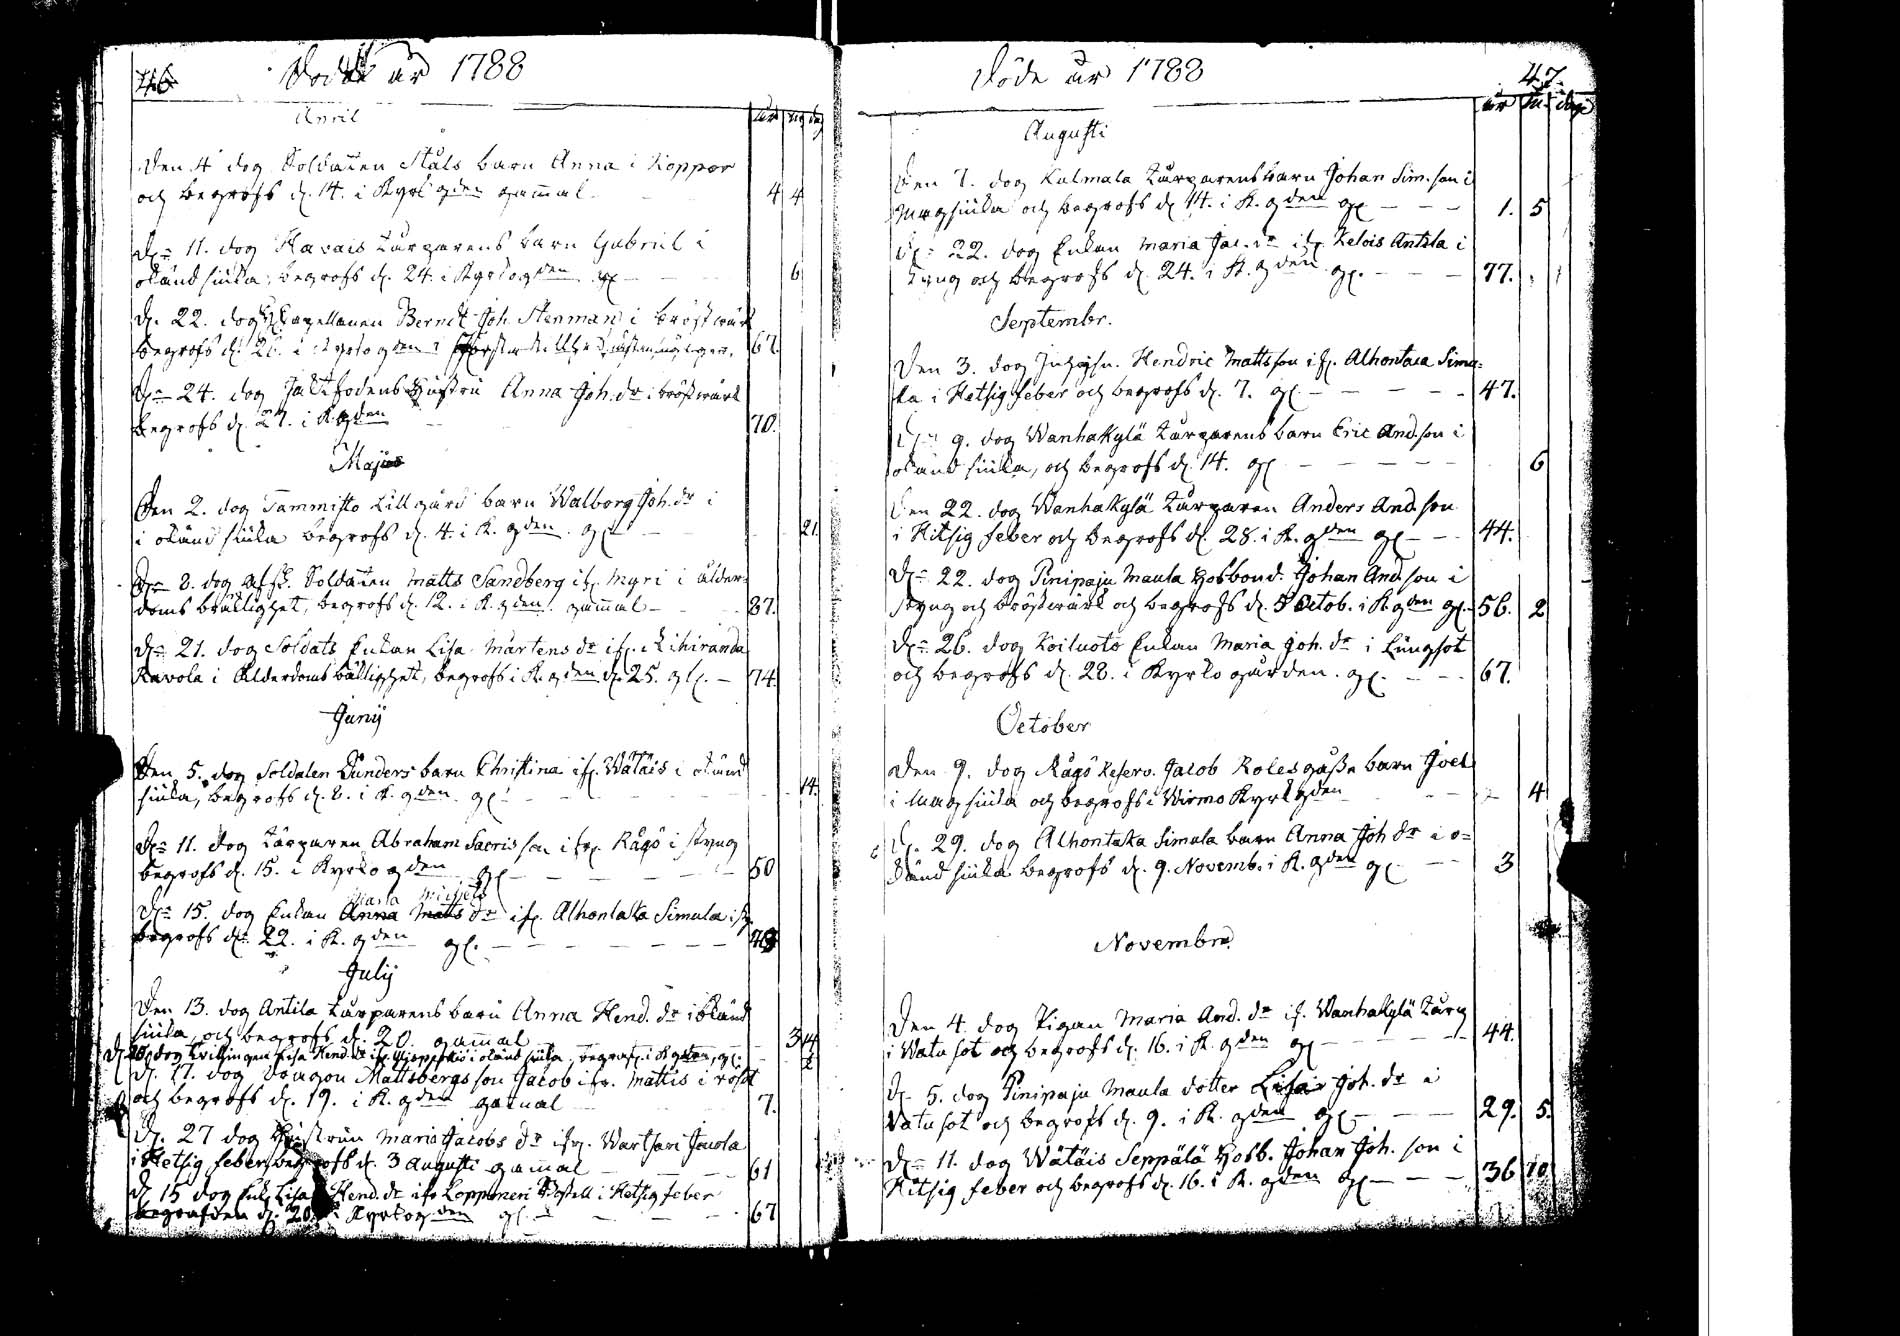 46. Döde år 1788
år m dag
April
Den 4 dog Soldaten Ståls barn Anna i Koppor
och begrofs d. 14. i Kyrkgden gammal - 4 4
D= 11. dog Kavais Torparens barn Gabriel i
okänd siuka, begrofs d. 24. i Kyrkogden gl - 6
D. 22. dog Capellanen Berndt Joh. Stenman i bröstwärk
begrofs d. 26. i Kyrkogden 67.
D= 24. dog Hustru Anna Joh. dr i bröstwärk
begrofs d. 27. i K.gden 70.
Majus
Den 2. dog Tammisto Lillgård barn Walborg Joh. dr i
i okänd siuka begrofs d. 4. i K. gden gl - 21.
D= 8. dog afsk. Soldaten Matts Sandberg ifr. Myri i ålder-
doms bräcklighet, begrofs d. 12. i K. gden gammal - 87.
D= 21. dog Soldats Enkan Lisa Mårtens dr ifr. Lihiranda
Kavola i Ålderdoms bäcklighet, begrofs i K. gden d. 25. gl. - 74.
Junij
Den 5. dog Soldaten Dunders barn Christina ifr. Wätäis i okänd
siuka, begrofs d. 8. i K. gden gl - 14.
D= 11. dog Torparen Abraham Sacris son ifr. Rågö i styng
begrofs d. 15. i Kyrkogden gl - 50
Maria Michels
D= 15. dog Enkan Anna Matts dr ifr. Alhontaka Simula i
begrofs d. 22. i K. gden gl. -
Julij
Den 13. dog Antila Torparens barn Anna Hend. dr i okänd
siuka och begrofs d. 20. gammal 3 14
dog Twillingen Lisa Hend. dr ifr. i okänd siuka, begraf. i Kgden, gl.
D. 17. dog Dragon Mattsbergs son Jacob ifr. Mattis i rösot
och begrofs d. 19. i K. gden gammal 7.
D. 27 dog Hustrun Maria Jacobs dr ifr. Wartsari Jauola
i Hetsig feber begrofs d. 3 Augusti gamal - 61
D 15 dog Enk. Lisa Hend. dr ifr Lopponeri Bostell i Hetsig feber
begrafven d. 20. i Kyrkogden gl - 67
Döde år 1788 47.
år m. dag
Augusti
Den 7. dog Kulmala Torparens barn Johan Sim. son i
Magsiuka och begrofs d. 14. i K. gden gl - 1. 5
D= 22. dog Enkan Maria Jac. dr ifr. Kelois Antila i
Styng och begrofs d. 24. i K. gden gl. - 77.
Septembr.
Den 3. dog Inhysn. Hendric Mattsson ifr. Alhontaca Simu-
la i Hetsig feber och begrofs d. 7. gl - 47.
D= 9. dog Wanhakylä Torparens barn Eric And. son i
okänd siuka, och begrofs d. 14. gl - 6
Den 22. dog Wanhakylä Torparen Anders And. son
i Hitsig feber och begrofs d. 28. i K. gden gl - 44.
D= 22. dog Pinipaju Maula Hosbond. Johan And. son i
styng och bröstwärk och begrofs d. 5 Octob. i K. gden gl. - 56. 2
D= 26. dog Koiluoto Enkan Maria Joh. dr i Lungsot
och begrofs d. 28. i Kyrkogården. gl. - 67.
October
Den 9. dog Rågö Reserv. Jacob Rolesgasse barn Joel
i Magsiuka och begrofs i Wirmo Kyrkgden - 4
D. 29. dog Alhontaka Simula barn Anna Joh dr i o=
känd siuka begrofs d. 9. Novemb. i K. gden gl - 3
Novembr.
Den 4. dog Pigan Maria And. dr if. Wanhakylä Torp
i Watusot och begrofs d. 16. i K. gden gl - 44.
D. 5. dog Pinipaju Maula dotter Lisa Joh. dr i
Vatusot och begrofs d. 9. i K. gden gl - 29. 5.
D= 11. dog Wätäis Seppälä Hosb. Johan Joh. son i
Hitsig feber och begrofs d. 16. i K. gden gl - 36 10